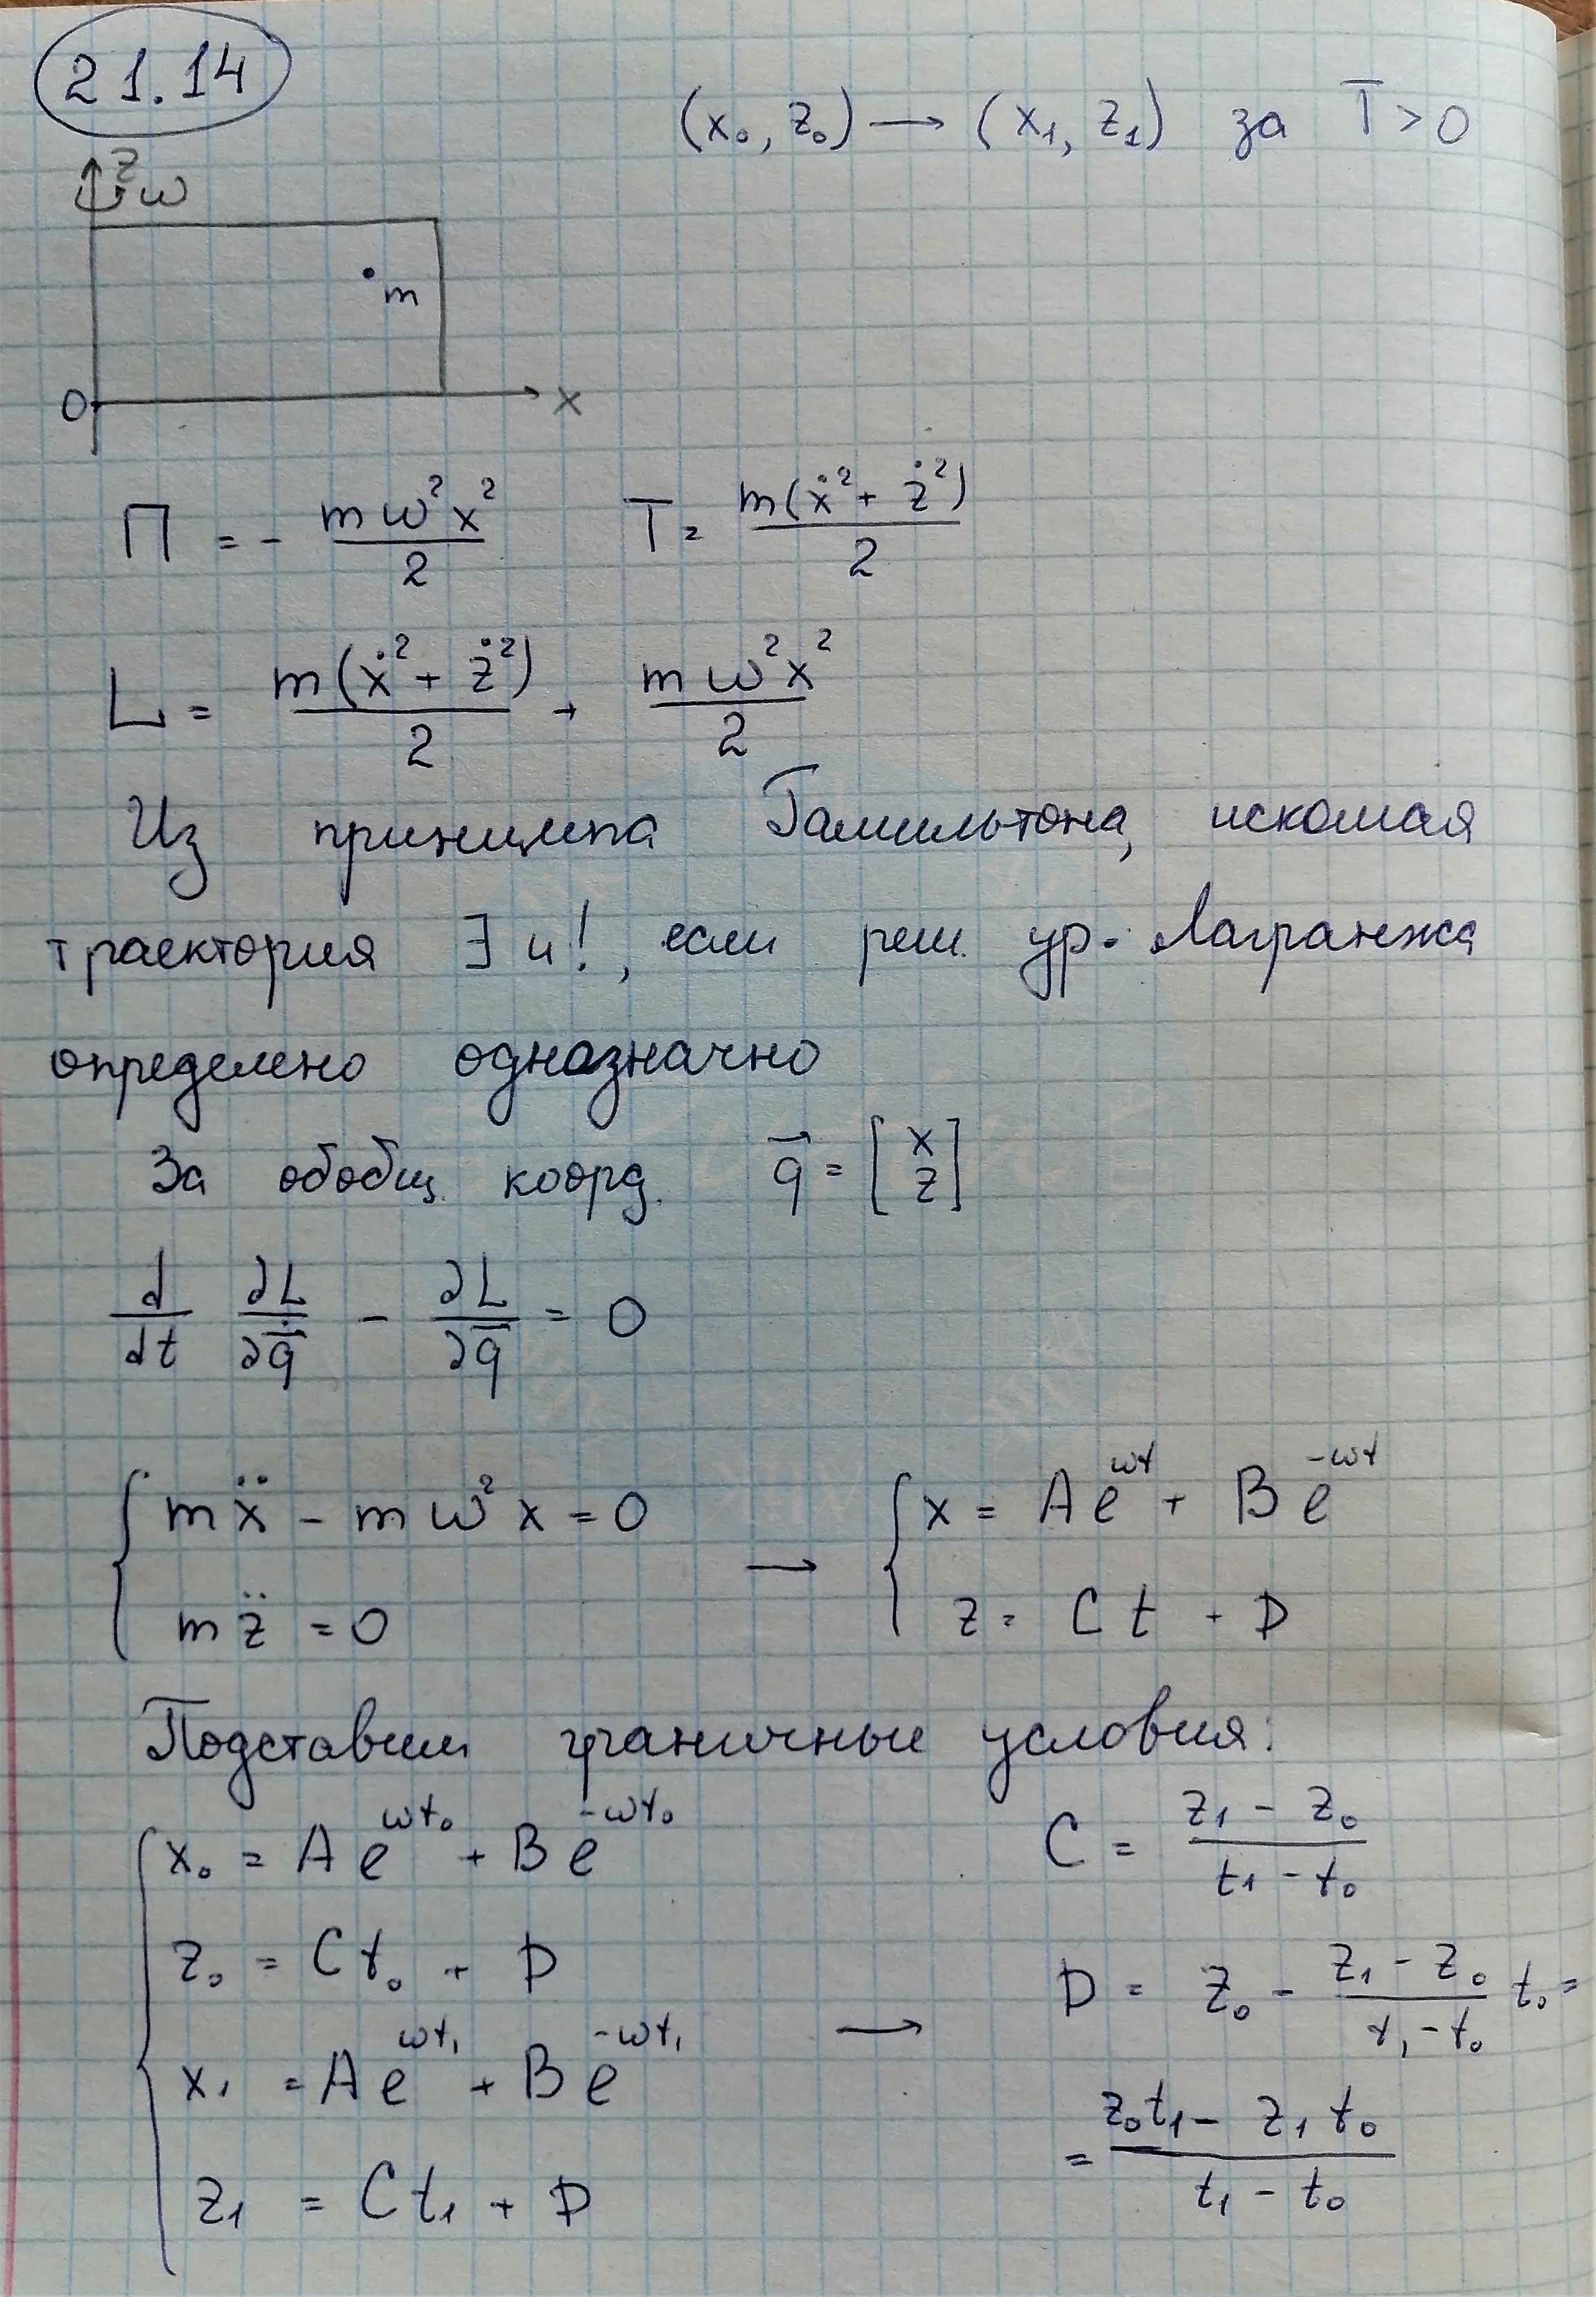 21.14
(x₀, z₀) → (x₁, z₁) за T > 0
z
ω
m
0
x
П = - mω²x²/2 T = m(ẋ² + ż²)/2
L = m(ẋ² + ż²)/2 + mω²x²/2
Из принципа Гамильтона, искомая
траектория ∃ и !, если реш. ур. Лагранжа
определено однозначно
За обобщ. коорд. q⃗ = [x z]
d/dt ∂L/∂q̇ - ∂L/∂q = 0
{ mẍ - mω²x = 0 → { x = Ae^(ωt) + Be^(-ωt)
mz̈ = 0 z = Ct + D
Подставим граничные условия:
{ x₀ = Ae^(ωt₀) + Be^(-ωt₀)
z₀ = Ct₀ + D
x₁ = Ae^(ωt₁) + Be^(-ωt₁)
z₁ = Ct₁ + D
→
C = (z₁ - z₀)/(t₁ - t₀)
D = z₀ - (z₁ - z₀)/(t₁ - t₀) t₀ =
= (z₀t₁ - z₁t₀)/(t₁ - t₀)